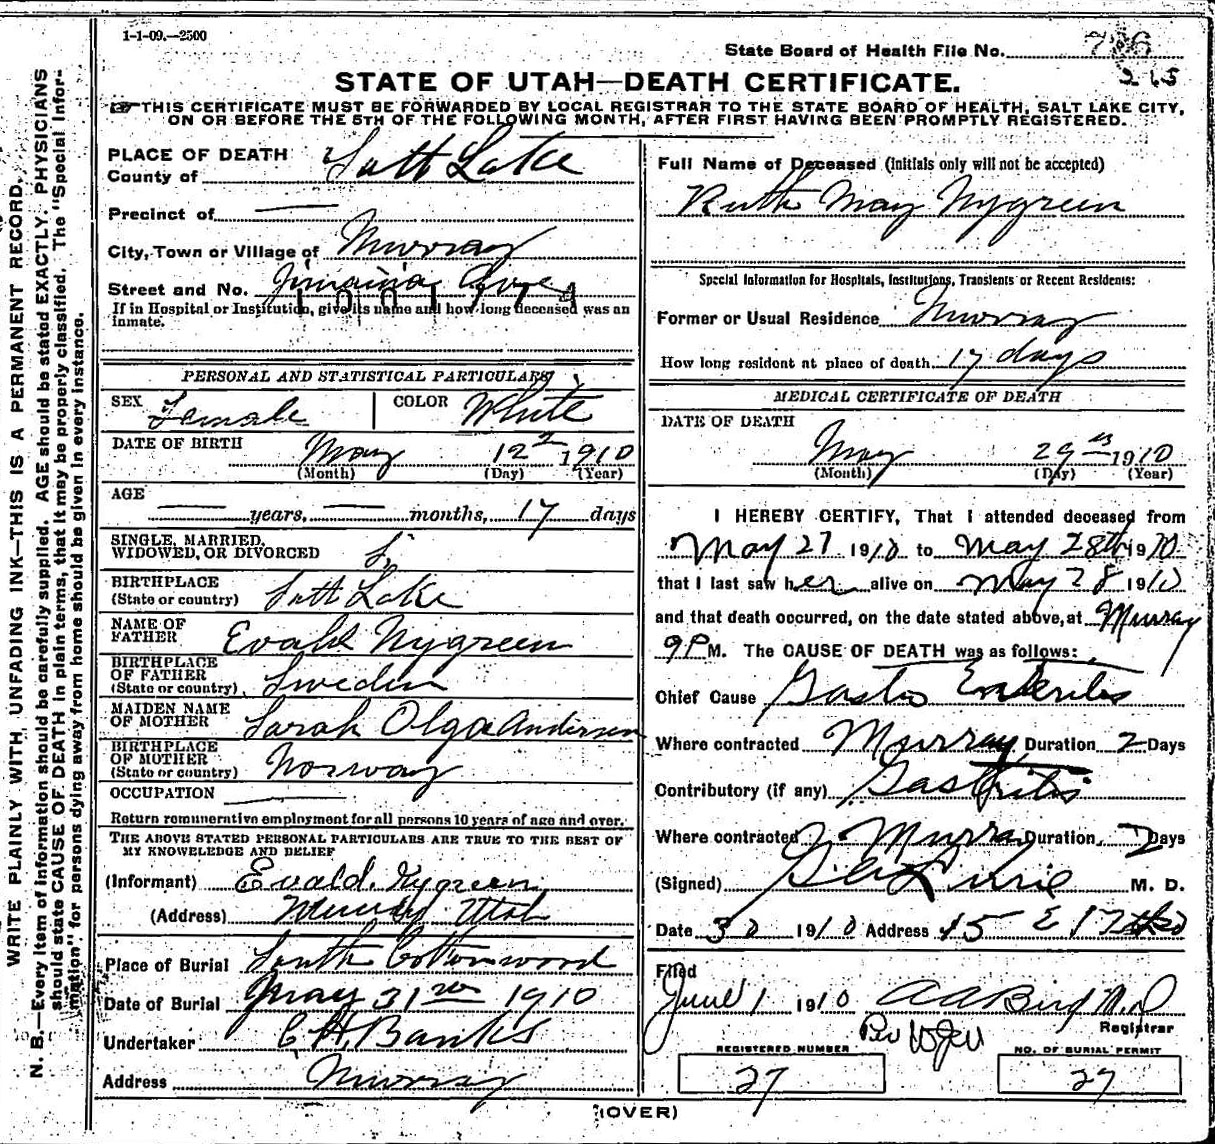 1-1-09.—2500
State Board of Health File No.
215
STATE OF UTAH—DEATH CERTIFICATE.
THIS CERTIFICATE MUST BE FORWARDED BY LOCAL REGISTRAR TO THE STATE BOARD OF HEALTH, SALT LAKE CITY,
ON OR BEFORE THE 5TH OF THE FOLLOWING MONTH, AFTER FIRST HAVING BEEN PROMPTLY REGISTERED.
WRITE PLAINLY WITH UNFADING INK—THIS IS A PERMANENT RECORD.
N. B.—Every item of information should be carefully supplied. AGE should be stated EXACTLY. PHYSICIANS
should state CAUSE OF DEATH in plain terms, that it may be properly classified. The "Special Infor-
mation" for persons dying away from home should be given in every instance.
PLACE OF DEATH
County of Salt Lake
Precinct of —
City, Town or Village of Murray
Street and No. Ave
If in Hospital or Institution, give its name and how long deceased was an
inmate.
PERSONAL AND STATISTICAL PARTICULARS
SEX Female COLOR White
DATE OF BIRTH May 12 1910
(Month) (Day) (Year)
AGE
— years, — months, 17 days
SINGLE, MARRIED,
WIDOWED, OR DIVORCED S
BIRTHPLACE
(State or country) Salt Lake
NAME OF
FATHER Evald Nygreen
BIRTHPLACE
OF FATHER
(State or country) Sweden
MAIDEN NAME
OF MOTHER Sarah Olga Andersen
BIRTHPLACE
OF MOTHER
(State or country) Norway
OCCUPATION —
Return remunerative employment for all persons 10 years of age and over.
THE ABOVE STATED PERSONAL PARTICULARS ARE TRUE TO THE BEST OF
MY KNOWLEDGE AND BELIEF
(Informant) Evald. Nygreen
(Address) Murray Utah
Place of Burial South Cottonwood
Date of Burial May 31 1910
Undertaker C H Banks
Address Murray
Full Name of Deceased (initials only will not be accepted)
Ruth May Nygreen
Special Information for Hospitals, Institutions, Transients or Recent Residents:
Former or Usual Residence Murray
How long resident at place of death 17 days
MEDICAL CERTIFICATE OF DEATH
DATE OF DEATH
May 29 1910
(Month) (Day) (Year)
I HEREBY CERTIFY, That I attended deceased from
May 27 1910 to May 28th 1910
that I last saw her alive on May 28 1910
and that death occurred, on the date stated above, at Murray
9 P M. The CAUSE OF DEATH was as follows:
Chief Cause Gastro Enteritis
Where contracted Murray Duration 2 Days
Contributory (if any) Gastritis
Where contracted Murray Duration 2 Days
(Signed) M. D.
Date 30 1910 Address 15 E
Filed
June 1 1910 A A Bird M.D
Registrar
REGISTERED NUMBER
27
NO. OF BURIAL PERMIT
27
(OVER)